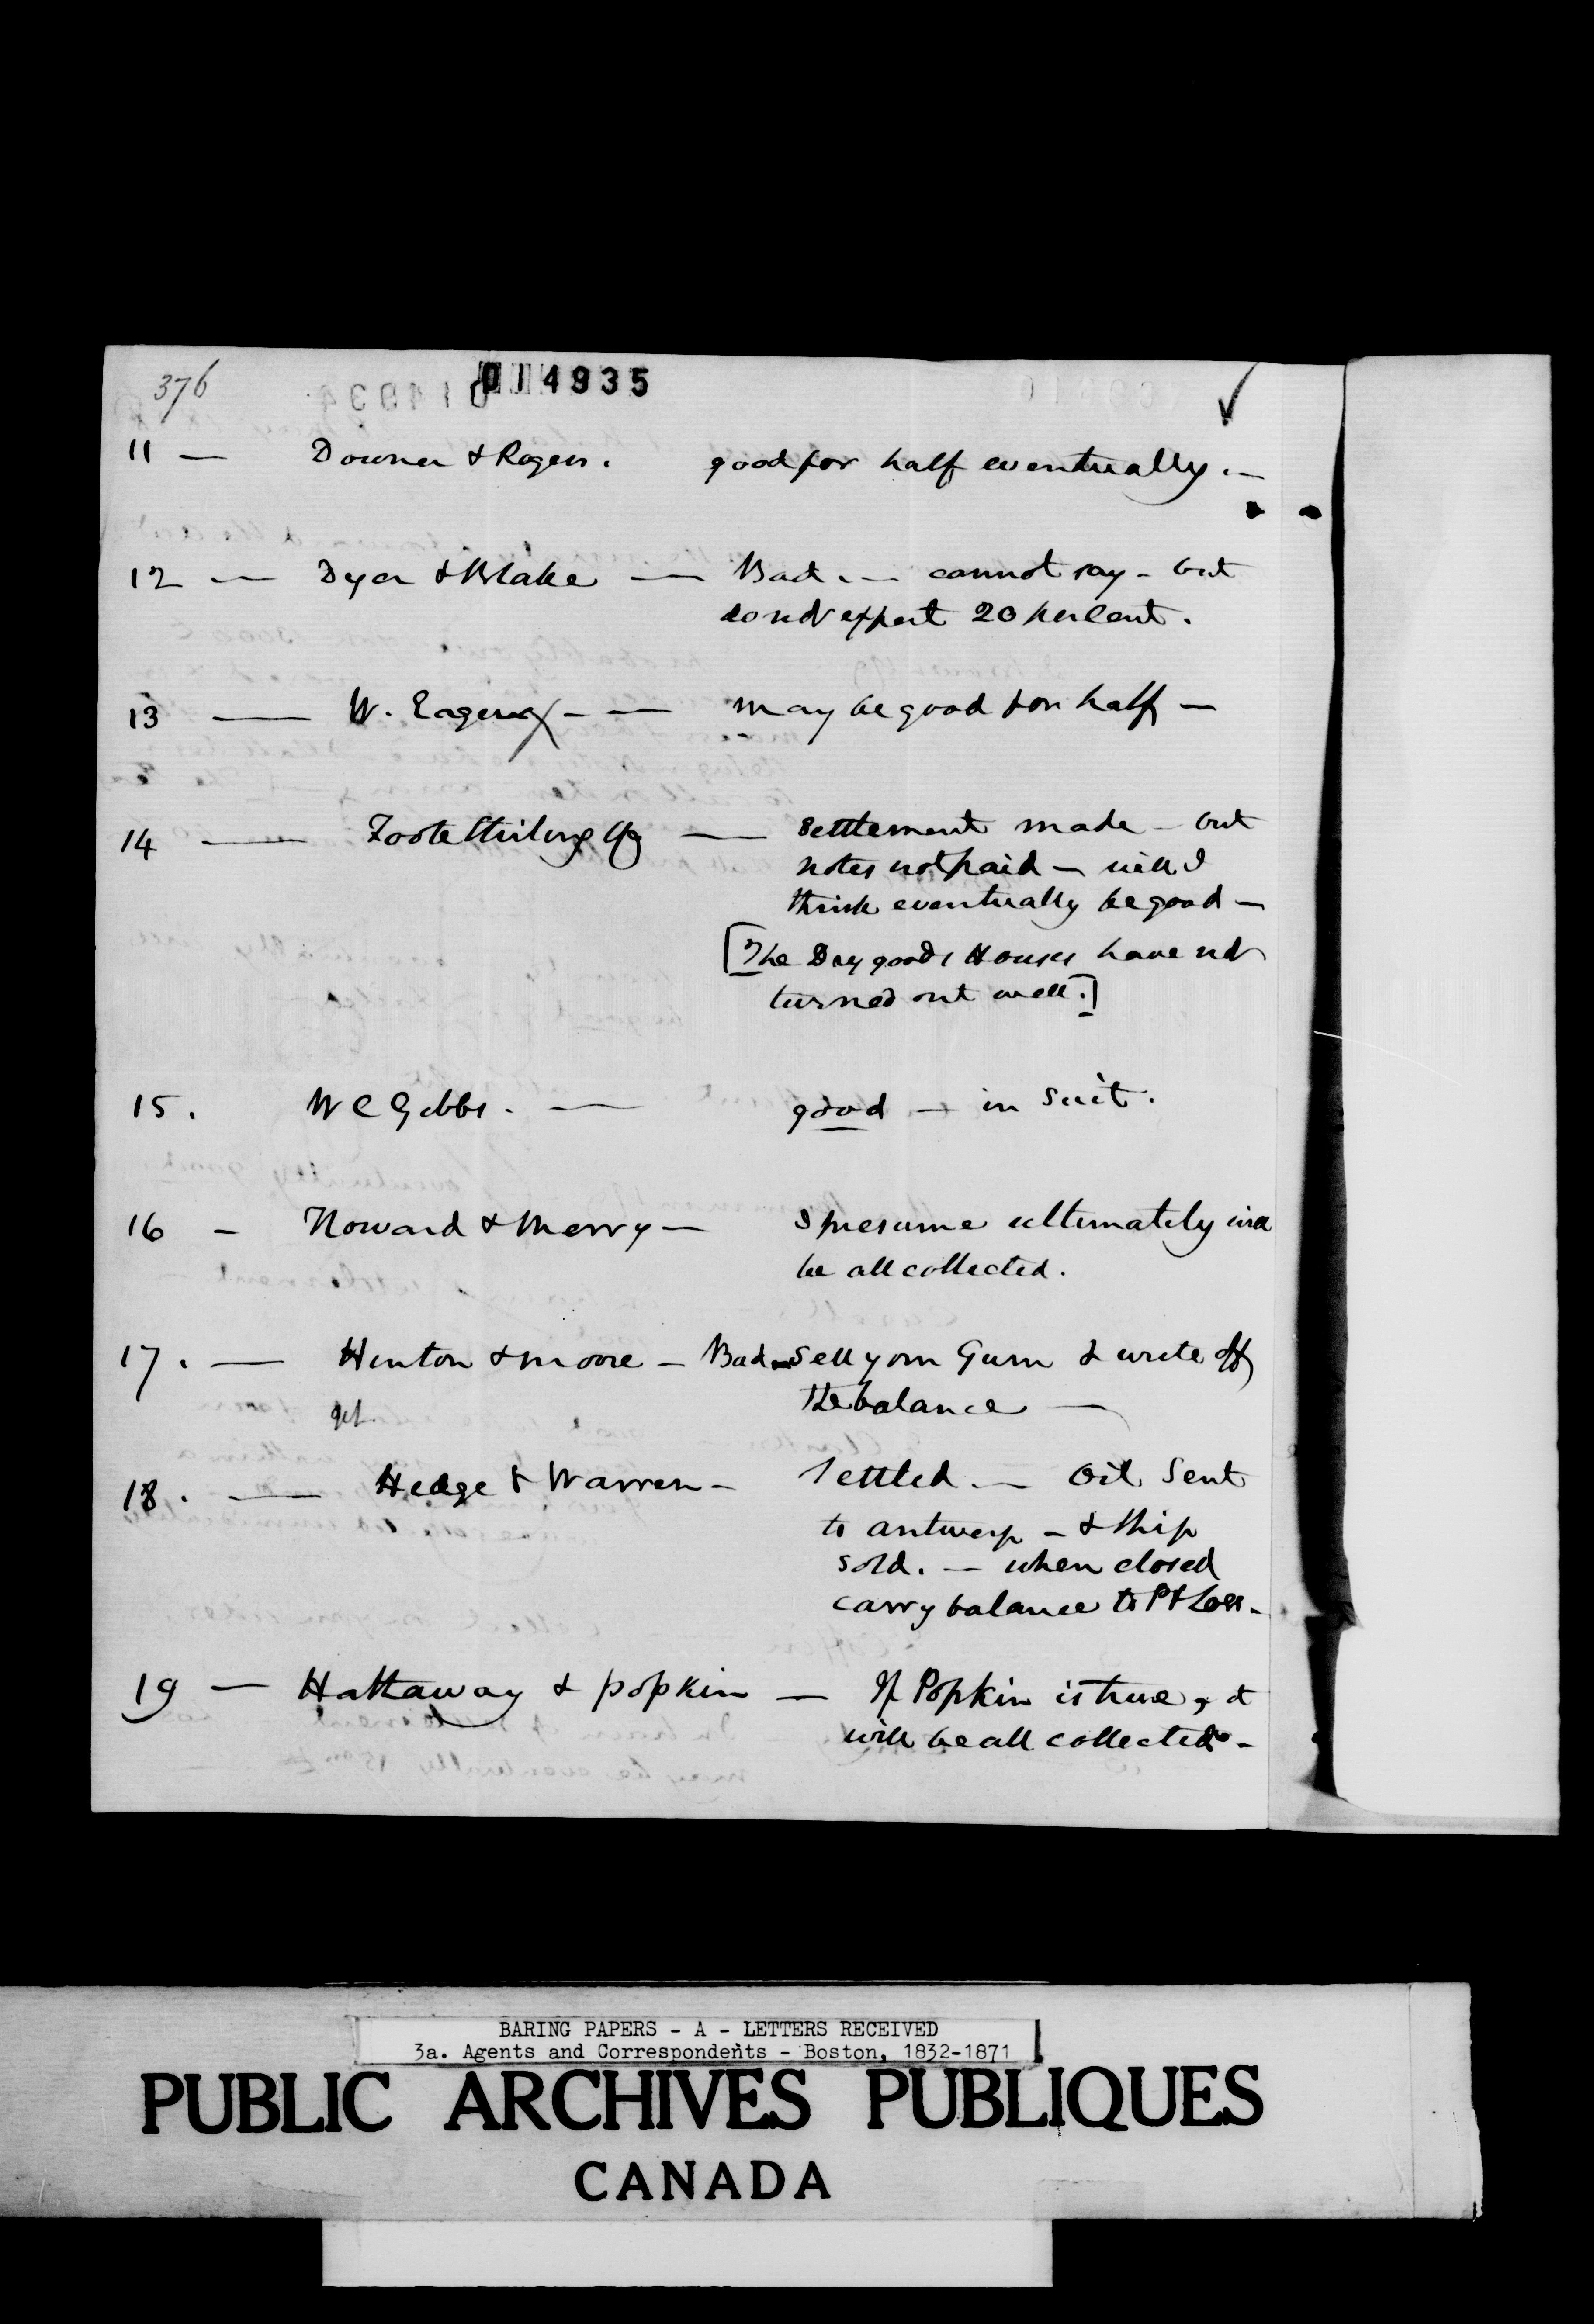 376
014935
11 — Downer & Rogers. good for half eventually. —
12 — Dyer & Blake — Bad. — cannot say - but
do not expect 20 per Cent.
13 — W. Eager — — may be good for half —
14 — Foote Stirling & Co — Settlement made — but
notes not paid — will I
think eventually be good —
[The Dry goods Houses have not
turned out well.]
15. W C Gibbs. — good — in Suit.
16 — Howard & Merry — I presume ultimately will
be all collected.
17. — Hinton & Moore — Bad — Sell your Gum & write off
the balance —
18. — Hedge & Warren — Settled. — Oil Sent
to Antwerp — & Ship
sold. — when closed
carry balance to P & Loss.
19 — Hattaway & Popkin — If Popkin is true, it
will be all collected -
BARING PAPERS - A - LETTERS RECEIVED
3a. Agents and Correspondents - Boston, 1832-1871
PUBLIC ARCHIVES PUBLIQUES
CANADA